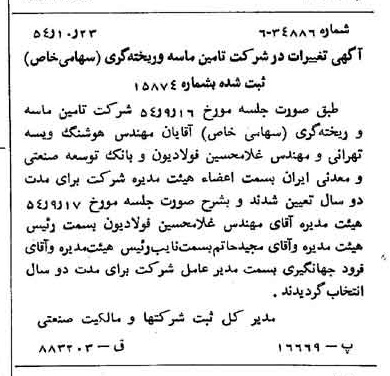 شماره ۳۴۸۸۶-۶ ۲۳ر۱۰ر۵۴
آگهی تغییرات در شرکت تامین ماسه وریخته‌گری (سهامی‌خاص)
ثبت شده بشماره ۱۵۸۷۴
طبق صورت جلسه مورخ ۱۶ر۹ر۵۴ شرکت تامین ماسه
و ریخته‌گری (سهامی خاص) آقایان مهندس هوشنگ ویسه
تهرانی و مهندس غلامحسین فولادیون و بانک توسعه صنعتی
و معدنی ایران بسمت اعضاء هیئت مدیره شرکت برای مدت
دو سال تعیین شدند و بشرح صورت جلسه مورخ ۱۷ر۹ر۵۴
هیئت مدیره آقای مهندس غلامحسین فولادیون بسمت رئیس
هیئت مدیره وآقای مجیدحاتم‌بسمت‌نایب‌رئیس هیئت‌مدیره وآقای
فرود جهانگیری بسمت مدیر عامل شرکت برای مدت دو سال
انتخاب گردیدند .
مدیر کل ثبت شرکتها و مالکیت صنعتی
پ — ۱۶۶۶۹ ق — ۸۸۳۲۰۳